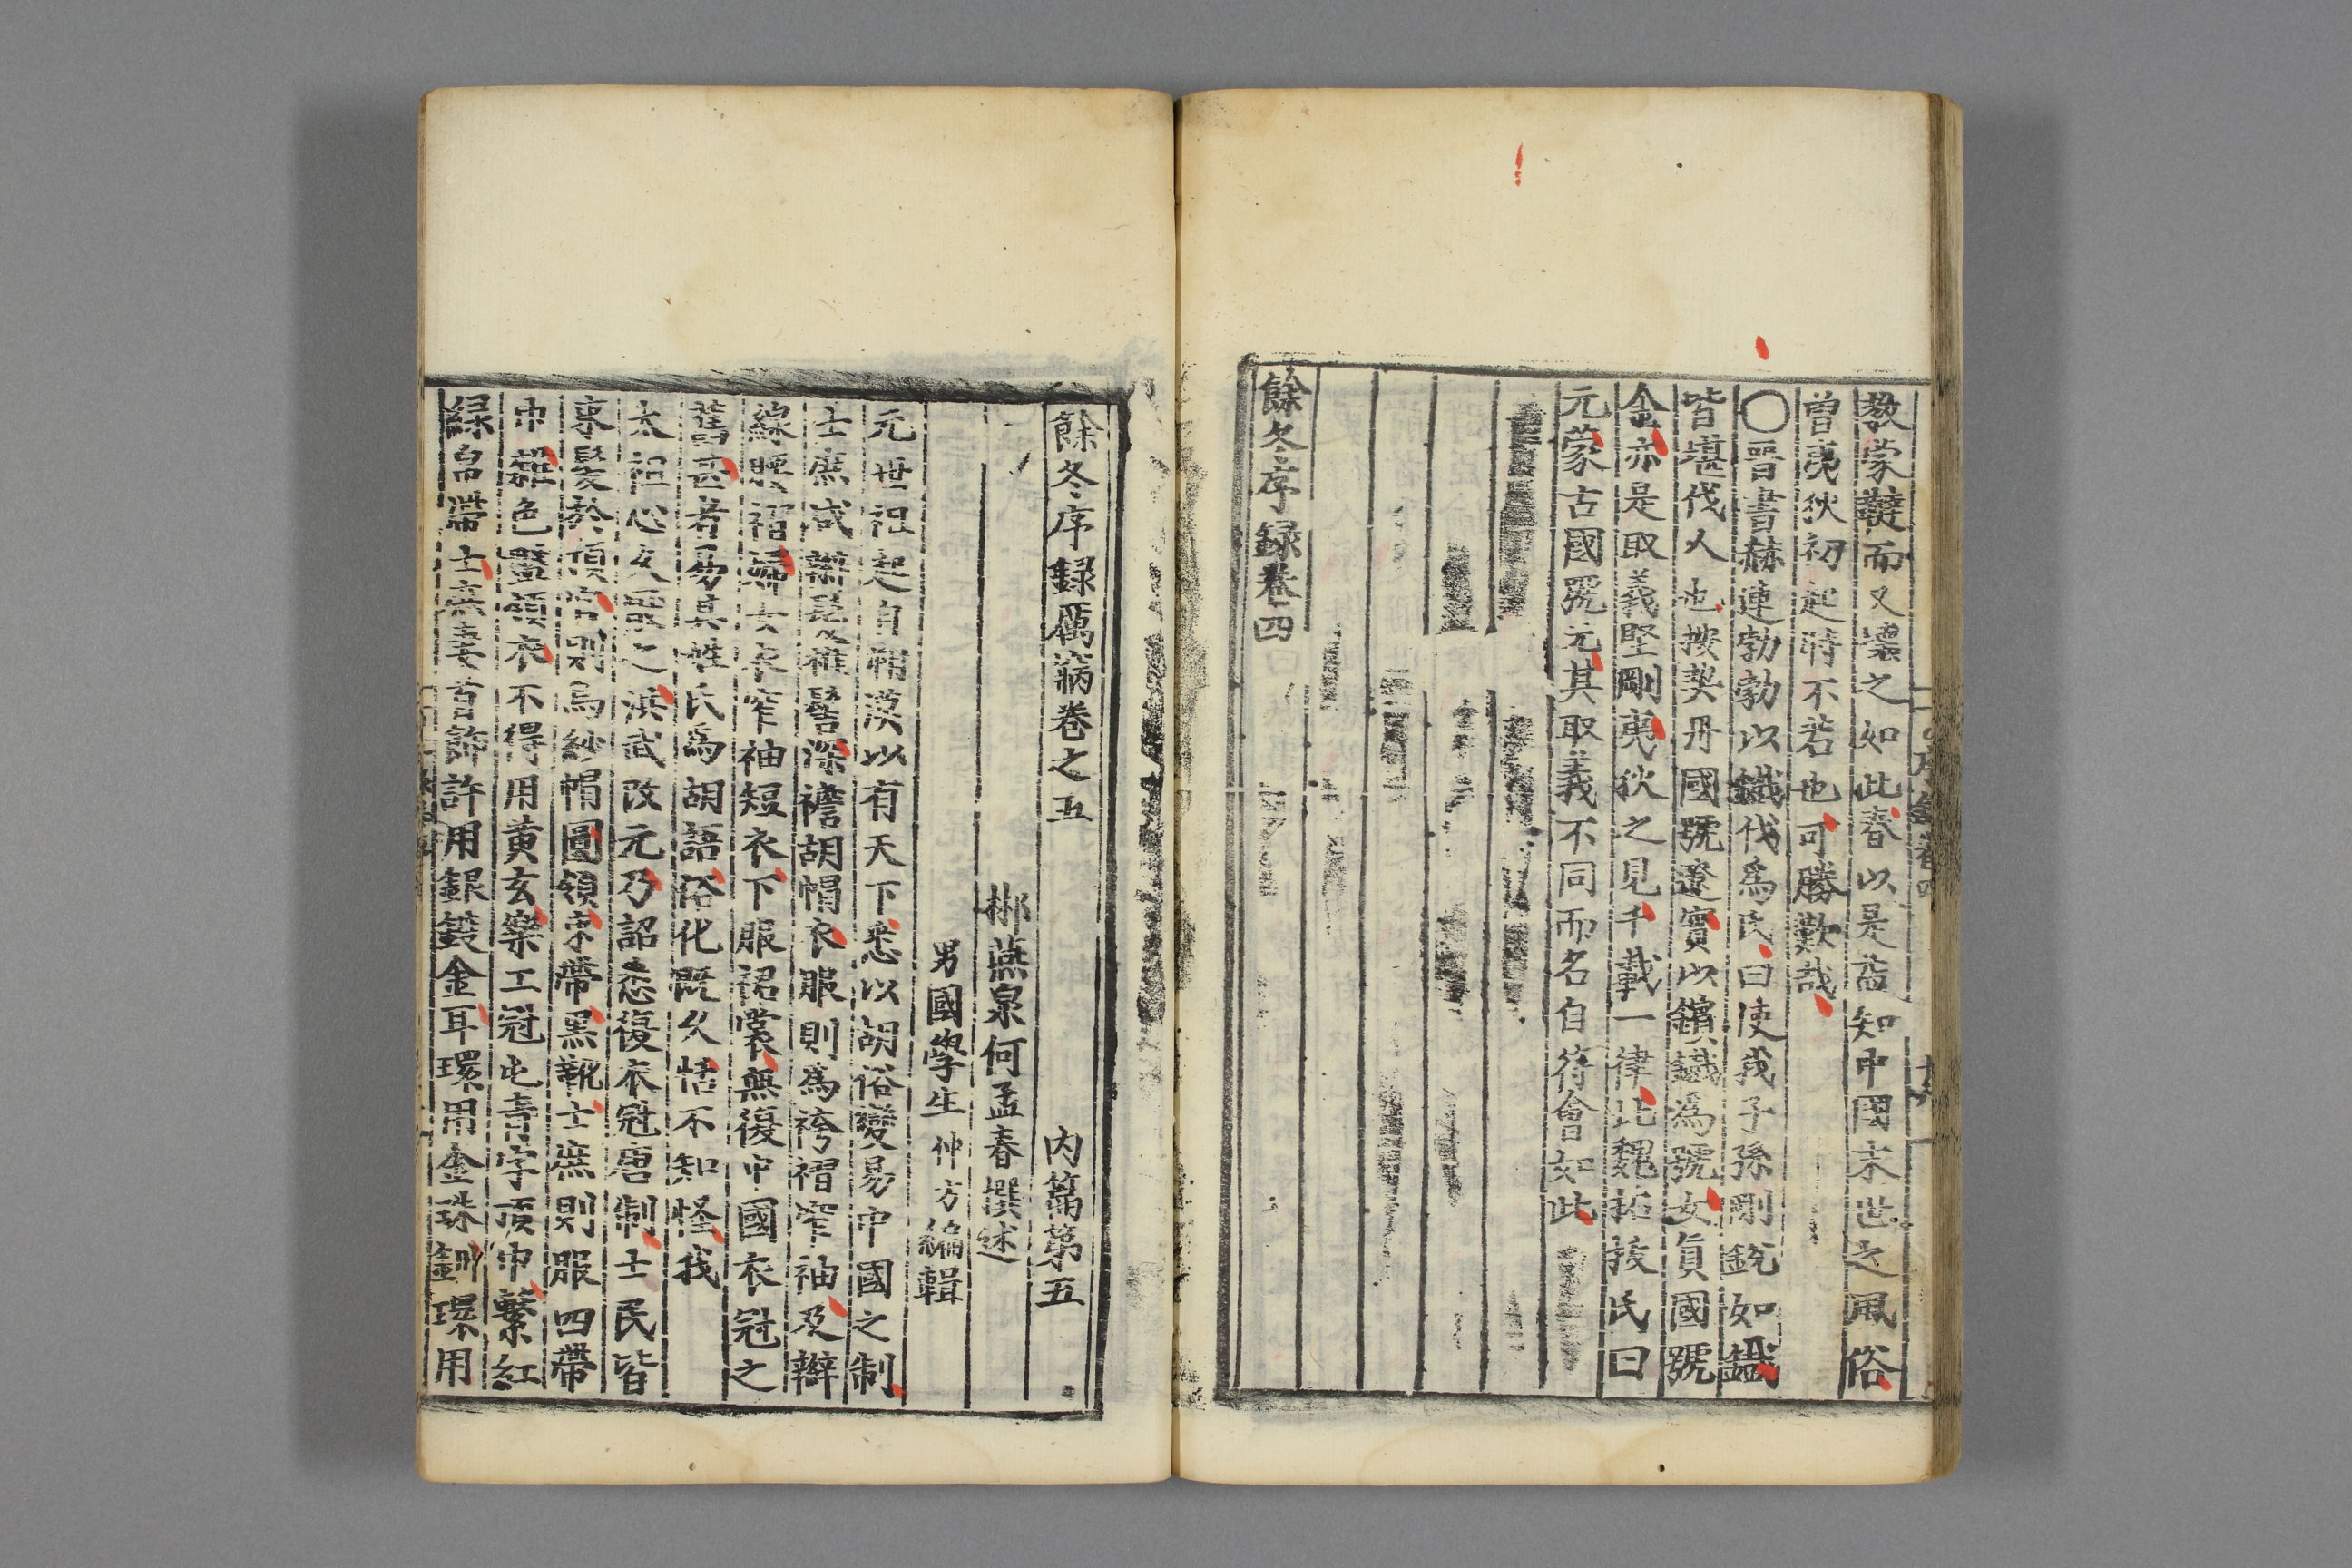 教蒙韃而又壞之如此春以是益知中國末世之風俗
曽夷狄初起時不若也可勝歎哉
〇晉書赫連勃勃以鐵伐爲氏曰使我子孫剛銳如鐵
皆堪伐人也按契丹國號遼實以鑌鐵爲號女眞國號
金亦是取義堅剛夷狄之見千載一律北魏拓拔氏曰
元蒙古國號元其取義不同而名自符會如此
餘冬序録卷四
餘冬序録厲蓈卷之五 内篇第五
郴燕泉何孟春撰述
男國學生仲方編輯
元世祖起自朔漠以有天下悉以胡俗變易中國之制
士庶咸辮髮椎髻深襜胡帽衣服則爲袴褶窄袖及辮
線腰褶婦女衣窄袖短衣下服裙裳無復中國衣冠之
舊甚者易其姓氏爲胡語俗化旣久恬不知怪我
太祖心久厭之洪武改元乃詔悉復衣冠唐制士民皆
束髮於頂官則烏紗帽圓領束帶黑靴士庶則服四帶
巾雜色盤領衣不得用黄玄樂工冠屯靑字頂巾繫紅
緑帛帶士庶妻首飾許用銀鍍金耳環用金珠釧環用